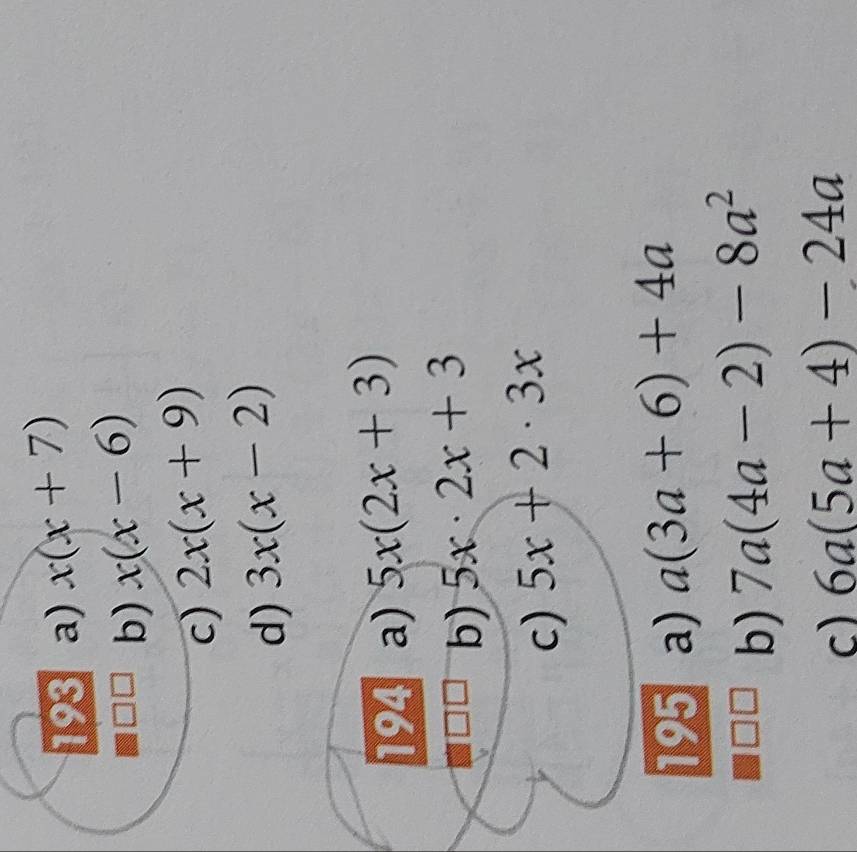 193 a) x(x + 7)
b) x(x − 6)
c) 2x(x + 9)
d) 3x(x − 2)
194 a) 5x(2x + 3)
b) 5x · 2x + 3
c) 5x + 2 · 3x
195 a) a(3a + 6) + 4a
b) 7a(4a − 2) − 8a²
c) 6a(5a + 4) − 24a